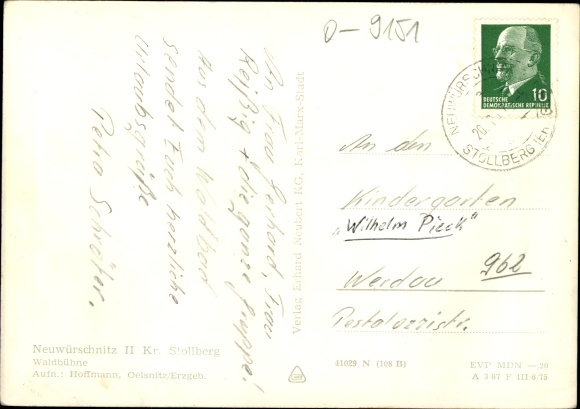 O-9151
An Frau Gerhard, Frau
Reißig + die ganze Gruppe!
Aus dem Waldbad
sendet Euch herzliche
Urlaubsgrüße
Petra Schröter.
Neuwürschnitz II Kr. Stollberg
Waldbühne
Aufn.: Hoffmann, Oelsnitz/Erzgeb.
Verlag Erhard Neubert KG, Karl-Marx-Stadt
10
DEUTSCHE
DEMOKRATISCHE REPUBLIK
NEUWÜRSCHNITZ
20.
STOLLBERG (ERZGEB
An den
Kindergarten
„Wilhelm Pieck"
962
Werdau
Pestalozzistr.
41029 N (108 B)
EVP MDN –.20
A 3/67 F III/6/75